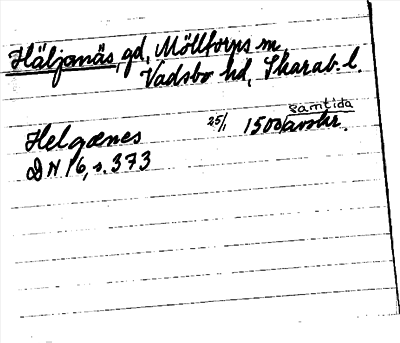 Häljanäs, gd, Mölltorps sn,
Vadsbo hd, Skarab. l.
samtida
Helganes 25/1 1500 avskr.
DN 16, s. 373